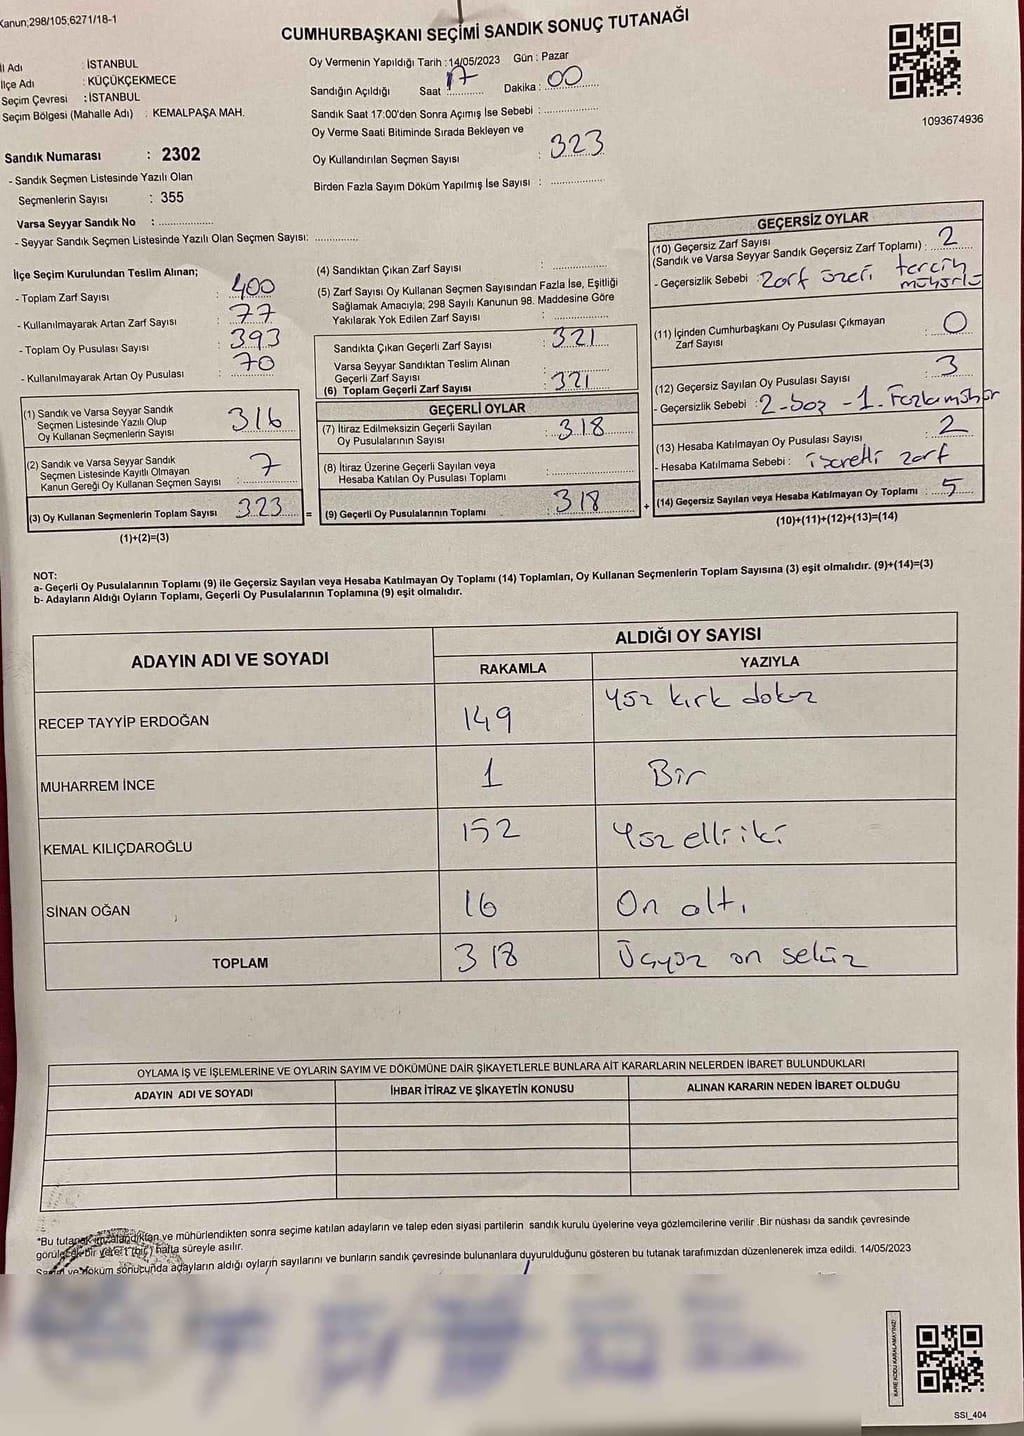 Kanun;298/105;6271/18-1
CUMHURBAŞKANI SEÇİMİ SANDIK SONUÇ TUTANAĞI
İl Adı : İSTANBUL
İlçe Adı : KÜÇÜKÇEKMECE
Seçim Çevresi : İSTANBUL
Seçim Bölgesi (Mahalle Adı) : KEMALPAŞA MAH.
Sandık Numarası : 2302
- Sandık Seçmen Listesinde Yazılı Olan
Seçmenlerin Sayısı : 355
Varsa Seyyar Sandık No : ................
- Seyyar Sandık Seçmen Listesinde Yazılı Olan Seçmen Sayısı: ............
Oy Vermenin Yapıldığı Tarih : 14/05/2023 Gün : Pazar
Sandığın Açıldığı Saat 17 Dakika : 00
Sandık Saat 17:00'den Sonra Açımış İse Sebebi : ................
Oy Verme Saati Bitiminde Sırada Bekleyen ve
Oy Kullandırılan Seçmen Sayısı : 323
Birden Fazla Sayım Döküm Yapılmış İse Sayısı : ................
1093674936
İlçe Seçim Kurulundan Teslim Alınan;
- Toplam Zarf Sayısı : 400
- Kullanılmayarak Artan Zarf Sayısı : 77
- Toplam Oy Pusulası Sayısı : 393
- Kullanılmayarak Artan Oy Pusulası : 70
(1) Sandık ve Varsa Seyyar Sandık
Seçmen Listesinde Yazılı Olup
Oy Kullanan Seçmenlerin Sayısı 316
(2) Sandık ve Varsa Seyyar Sandık
Seçmen Listesinde Kayıtlı Olmayan
Kanun Gereği Oy Kullanan Seçmen Sayısı : 7
(3) Oy Kullanan Seçmenlerin Toplam Sayısı 323 =
(1)+(2)=(3)
(4) Sandıktan Çıkan Zarf Sayısı : ................
(5) Zarf Sayısı Oy Kullanan Seçmen Sayısından Fazla İse, Eşitliği
Sağlamak Amacıyla; 298 Sayılı Kanunun 98. Maddesine Göre
Yakılarak Yok Edilen Zarf Sayısı : ................
Sandıkta Çıkan Geçerli Zarf Sayısı : 321
Varsa Seyyar Sandıktan Teslim Alınan
Geçerli Zarf Sayısı
(6) Toplam Geçerli Zarf Sayısı : 321
GEÇERLİ OYLAR
(7) İtiraz Edilmeksizin Geçerli Sayılan
Oy Pusulalarının Sayısı : 318
(8) İtiraz Üzerine Geçerli Sayılan veya
Hesaba Katılan Oy Pusulası Toplamı : ................
(9) Geçerli Oy Pusulalarının Toplamı : 318 +
GEÇERSİZ OYLAR
(10) Geçersiz Zarf Sayısı
(Sandık ve Varsa Seyyar Sandık Geçersiz Zarf Toplamı) : 2
- Geçersizlik Sebebi : Zarf üzeri tercih
mühürlü
(11) İçinden Cumhurbaşkanı Oy Pusulası Çıkmayan
Zarf Sayısı : 0
(12) Geçersiz Sayılan Oy Pusulası Sayısı : 3
- Geçersizlik Sebebi : 2-boş -1-Fazla mühür
(13) Hesaba Katılmayan Oy Pusulası Sayısı : 2
- Hesaba Katılmama Sebebi : işaretli zarf
(14) Geçersiz Sayılan veya Hesaba Katılmayan Oy Toplamı : 5
(10)+(11)+(12)+(13)=(14)
NOT:
a- Geçerli Oy Pusulalarının Toplamı (9) ile Geçersiz Sayılan veya Hesaba Katılmayan Oy Toplamı (14) Toplamları, Oy Kullanan Seçmenlerin Toplam Sayısına (3) eşit olmalıdır. (9)+(14)=(3)
b- Adayların Aldığı Oyların Toplamı, Geçerli Oy Pusulalarının Toplamına (9) eşit olmalıdır.
ADAYIN ADI VE SOYADI ALDIĞI OY SAYISI
RAKAMLA YAZIYLA
RECEP TAYYİP ERDOĞAN 149 Yüz kırk dokuz
MUHARREM İNCE 1 Bir
KEMAL KILIÇDAROĞLU 152 Yüz elli iki
SİNAN OĞAN 16 On altı
TOPLAM 318 Üçyüz on sekiz
OYLAMA İŞ VE İŞLEMLERİNE VE OYLARIN SAYIM VE DÖKÜMÜNE DAİR ŞİKAYETLERLE BUNLARA AİT KARARLARIN NELERDEN İBARET BULUNDUKLARI
ADAYIN ADI VE SOYADI İHBAR İTİRAZ VE ŞİKAYETİN KONUSU ALINAN KARARIN NEDEN İBARET OLDUĞU
*Bu tutanak imzalandıktan ve mühürlendikten sonra seçime katılan adayların ve talep eden siyasi partilerin sandık kurulu üyelerine veya gözlemcilerine verilir .Bir nüshası da sandık çevresinde
görülecek bir yere 1 (bir) hafta süreyle asılır.
Sayım ve döküm sonucunda adayların aldığı oyların sayılarını ve bunların sandık çevresinde bulunanlara duyurulduğunu gösteren bu tutanak tarafımızdan düzenlenerek imza edildi. 14/05/2023
KARE KODU KARALAMAYINIZ!
SSI_404